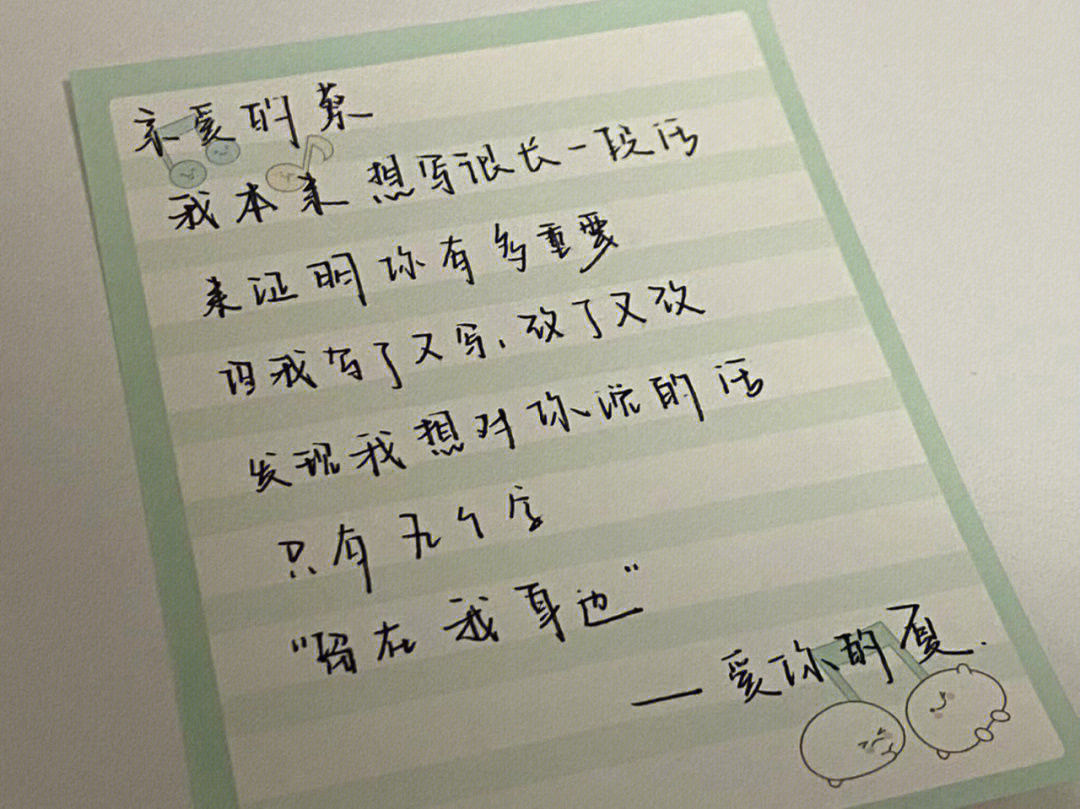 亲爱的蔡
我本来想写很长一段话
来证明你有多重要
但我写了又写、改了又改
发现我想对你说的话
只有五个字
“留在我身边”
——爱你的夏.